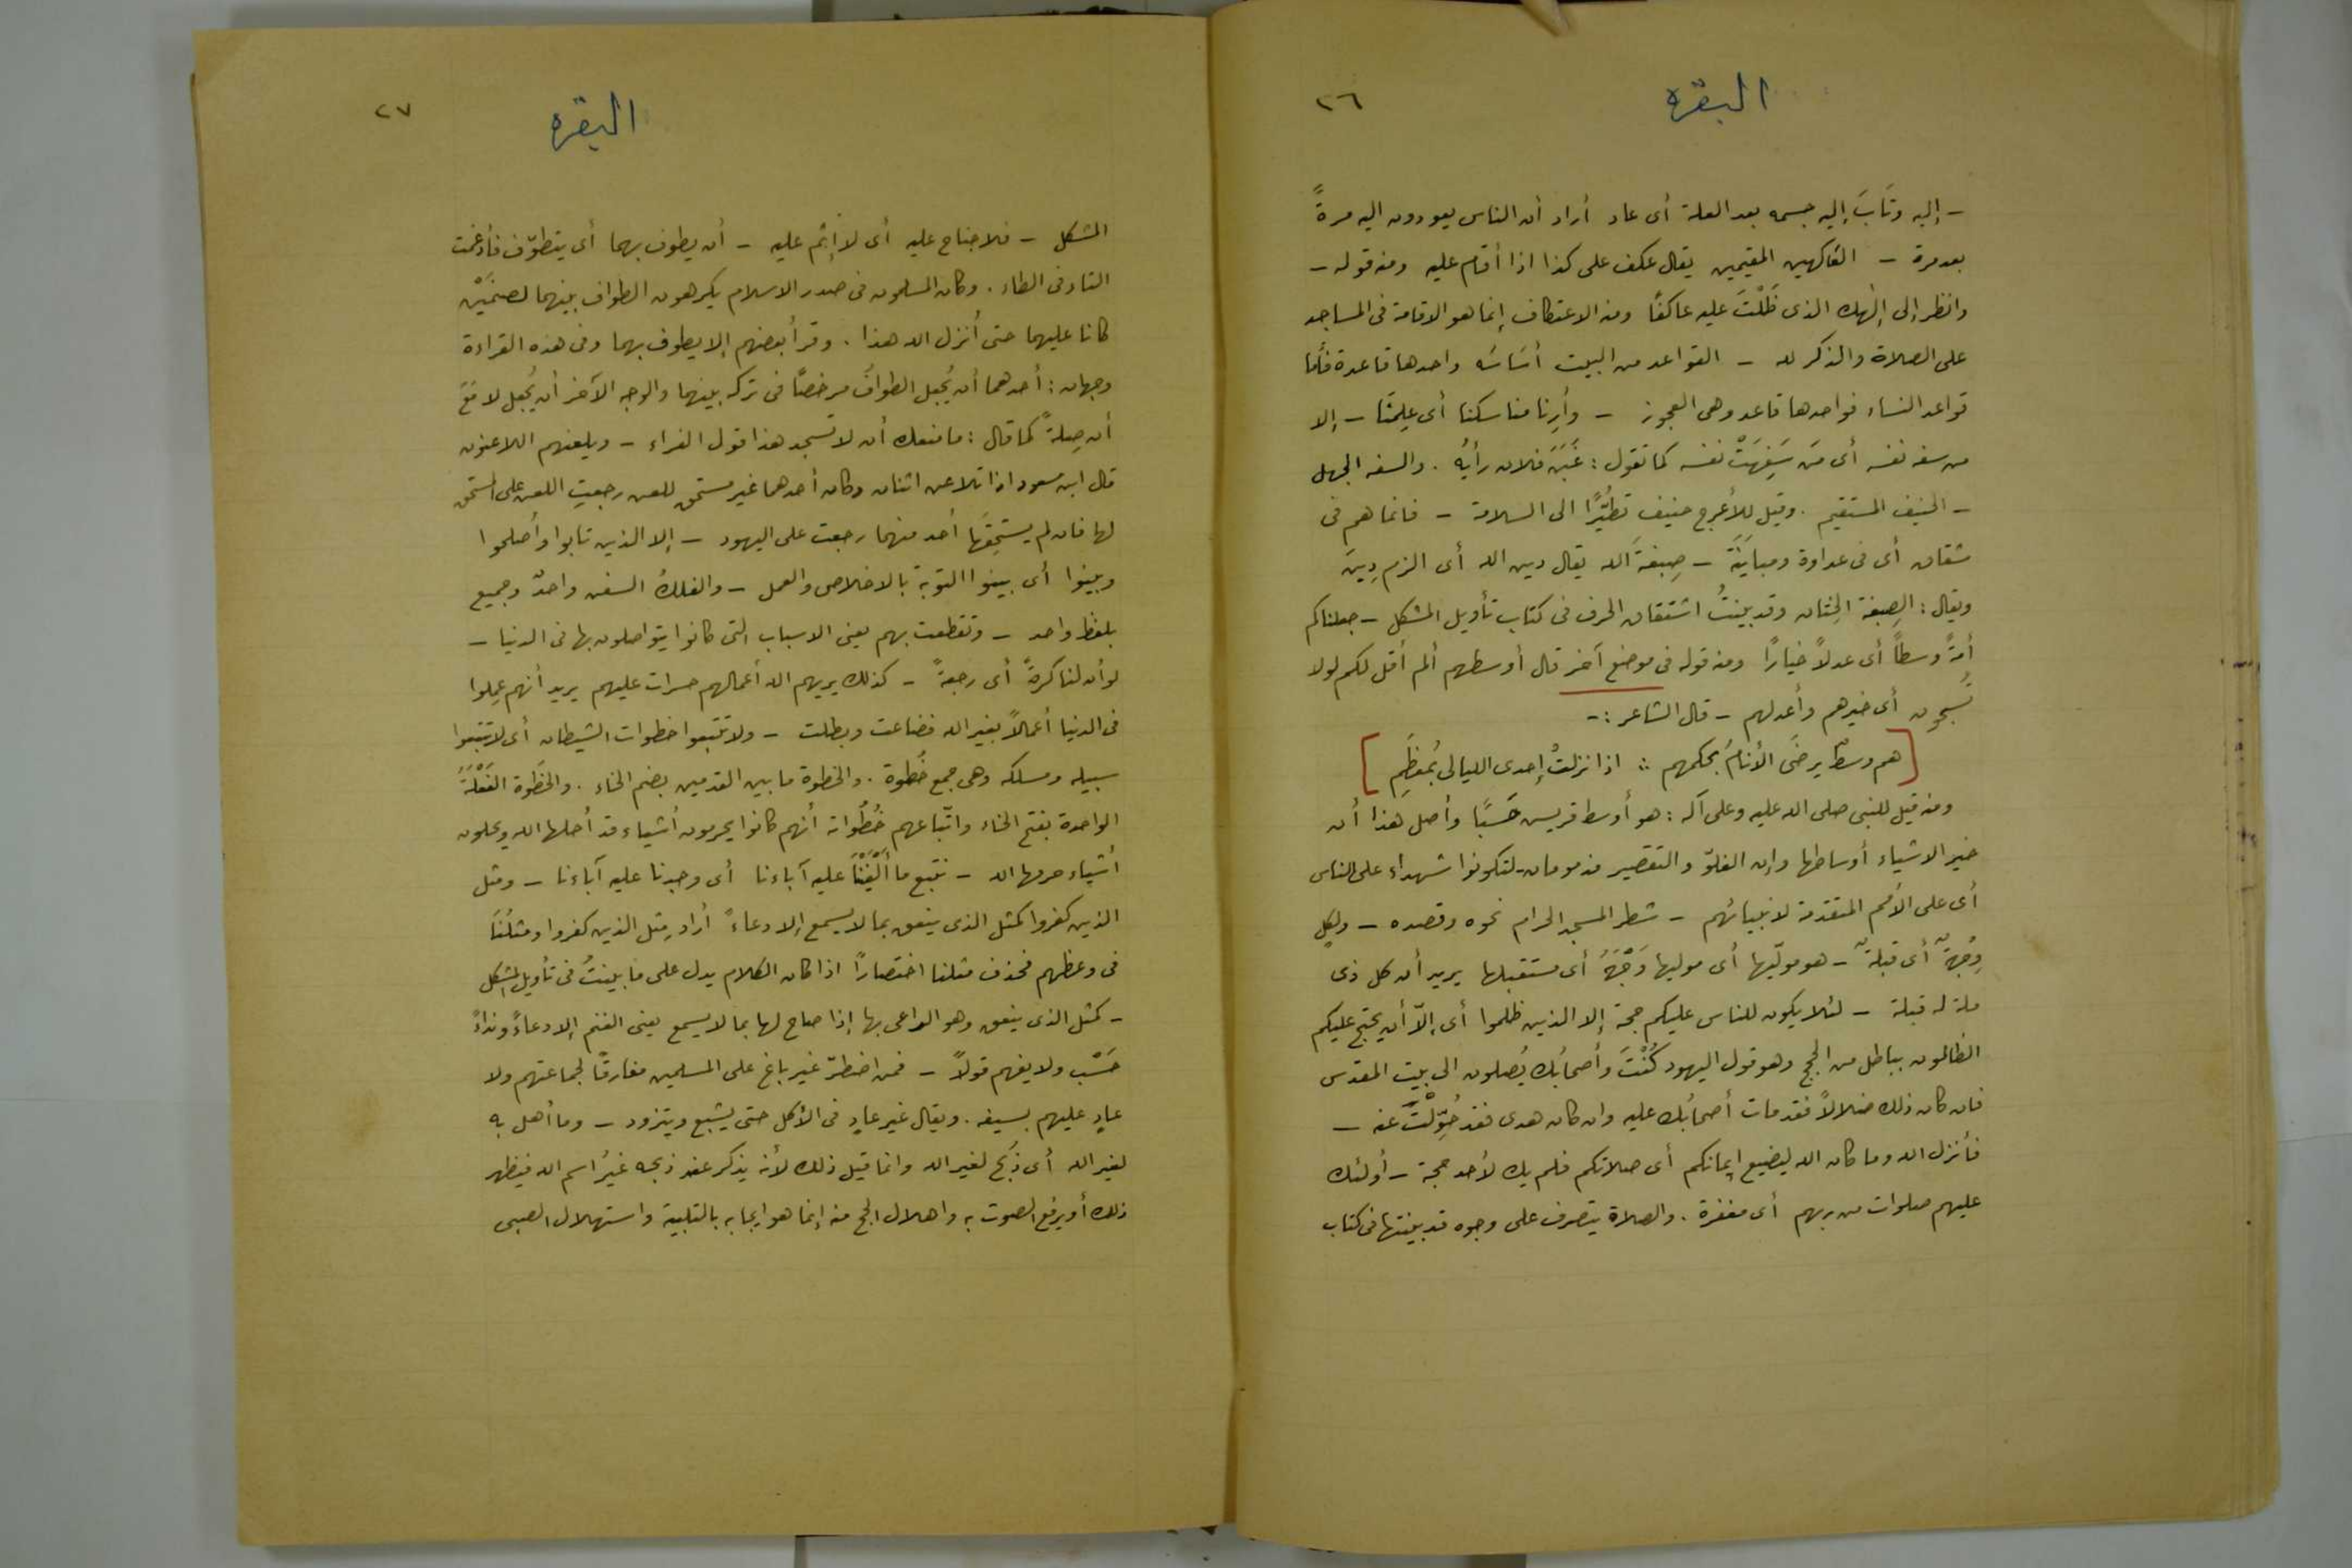 البقره
٢٦
- إليه وثَابَ إليه جسمه بعد العلة أى عاد أراد أن الناس يعودون اليه مرةً
بعد مرة - العاكفين المقيمين يقال عكف على كذا اذا أقام عليه ومنه قوله -
وانظر إلى إلٰهك الذى ظَلْتَ عليه عاكفًا ومنه الاعتكاف إنما هو الاقامة فى المساجد
على الصلاة والذكر لله - القواعد من البيت أسَاسُه واحدها قاعدة فأما
قواعد النساء فواحدها قاعد وهى العجوز - وأرِنا مناسكنا أى علِّمنَا - إلا
من سفه نفسه أى مَن سَفِهَتْ نفسه كما تقول : غَبَنَ فلان رأيُه . والسفه الجهل
- الحنيف المستقيم . وقيل للأعرج حنيف تطيُّرًا الى السلامة - فانما هم فى
شقاق أى فى عداوة ومبايَنَة - صِبغةَ الله يقال دين الله أى الزم دِينَ
ويقال : الصِبغة الخِتان وقد بينتُ اشتقاق الحرف فى كتاب تأويل المشكل - جعلناكم
أمةً وسطاً أى عدلاً خيارًا ومنه قوله فى موضع آخر قال أوسطهم ألم أقل لكم لولا
تُسبحون أى خيرهم وأعدلهم - قال الشاعر :-
[ هم وسطٌ يرضَى الأنامُ بحكمهم ∴ اذا نزلتْ إحدى الليالى بمُعظَمِ ]
ومنه قيل للنبى صلى الله عليه وعلى آله : هو أوسط قريس حَسَبًا وأصل هذا أن
خير الاشياء أوساطها وإن الغلوّ والتقصير مذمومان - لتكونوا شهداء على الناس
أى على الأمم المتقدمة لانبيائهم - شطر المسجد الحرام نحوه وقصده - ولِكلٍ
وِجْهةٌ أى قبلةٌ - هو مولّيها أى موليها وَجْهَهُ أى مستقبلها يريد أن كل ذى
ملة له قبلة - لئلا يكون للناس عليكم حجة إلا الذين ظلموا أى إلاّ أن يحتج عليكم
الظالمون بباطل من الحجج وهو قول اليهود كُنْتَ وأصحابُك يُصلون الى بيت المقدس
فان كان ذلك ضلالاً فقد مات أصحابُك عليه وان كان هدى فقد حُوِّلْتَ عنه -
فأنزل الله وما كان الله ليضيع إيمانكم أى صلاتكم فلم يك لأحد حجة - أولئك
عليهم صلوات من ربهم أى مغفرة . والصلاة يتصرف على وجوه قد بينتها فى كتاب
البقره
٢٧
المشكل - فلا جناح عليه أى لا إثْم عليه - أن يطوف بهما أى يتطوّف فأدغمت
التاء فى الطاء . وكان المسلمون فى صدر الاسلام يكرهون الطواف بينهما لصنمَيْن
كانا عليهما حتى أنزل الله هذا . وقرأ بعضهم إلا يطوف بهما وفى هذه القراءة
وجهان : أحدهما أن يُجعل الطوافُ مرخصًا فى تركه بينهما والوجه الآخر أن يُجعل لا مَعَ
أن صِلةً كما قال : ما منعك أن لا تسجد هذا قول الفراء - ويلعنهم اللاعنون
قال ابن مسعود اذا تلاعن اثنان وكان أحدهما غير مستحق للعن رجعتِ اللعن على المستحق
لها فان لم يستحِقَّها أحد منهما رجعت على اليهود - إلا الذين تابوا وأصلحوا
وبينوا أى بينوا التوبة بالاخلاص والعمل - والفلك السفن واحدٌ وجميع
بلفظ واحد - وتقطعت بهم يعنى الاسباب التى كانوا يتواصلون بها فى الدنيا -
لو أن لنا كرةً أى رجعةً - كذلك يريهم الله أعمالهم حسرات عليهم يريد أنهم عمِلوا
فى الدنيا أعمالاً بغير الله فضاعت وبطلت - ولا تتبعوا خطوات الشيطان أى لا تتبعوا
سبيله ومسلكه وهى جمع خُطوة . والخطوة ما بين القدمين بضم الخاء . والخَطوة الفَعْلَةُ
الواحدة بفتح الخاء واتّباعهم خُطُواته أنهم كانوا يحرمون أشياء قد أحلها الله ويحلون
أشياء حرمها الله - نتبع ما ألفَيْنَا عليه آباءنا أى وجدنا عليه آباءنا - ومثل
الذين كفروا كمثل الذى ينعق بما لا يسمع إلا دعاءً أراد مثل الذين كفروا ومثلُنَا
فى وعظهم فحذف مثلنا اختصارًا اذا كان الكلام يدل على ما بينتُ فى تأويل المشكل
- كمثل الذى ينعق وهو الراعى بها إذا صاح لها بما لا يسمع يعنى الغنم إلا دعاءً ونداءً
حَسْب ولا يفهم قولاً - فمن اضطرّ غير باغ على المسلمين مفارقًا لجماعتهم ولا
عادٍ عليهم بسيفه . ويقال غير عادٍ فى الأكل حتى يشبع ويتزود - وما أهل به
لغير الله أى ذُبح لغير الله وانما قيل ذلك لأنه يذكر عند ذبحه غيرُ اسم الله فيظهر
ذلك أو يرفع الصوت به واهلال الحج منه إنما هو ايجابه بالتلبية واستهلال الصبى